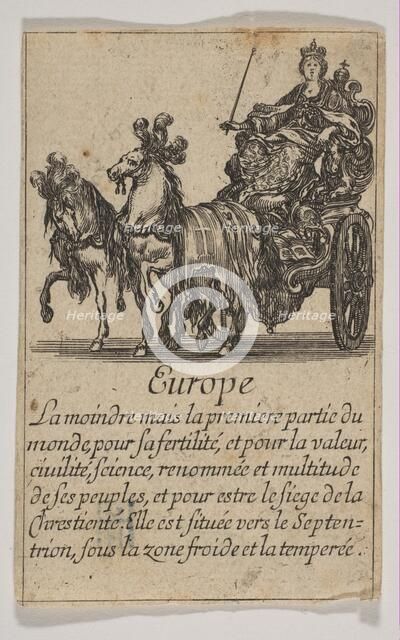 Heritage Heritage
Heritage Heritage Heritage
Europe
La moindre mais la premiere partie du
monde, pour sa fertilité, et pour la valeur,
ciuilité, science, renommée et multitude
de ses peuples, et pour estre le siege de la
Chrestienté. Elle est située vers le Septen-
trion, sous la zone froide et la temperée.